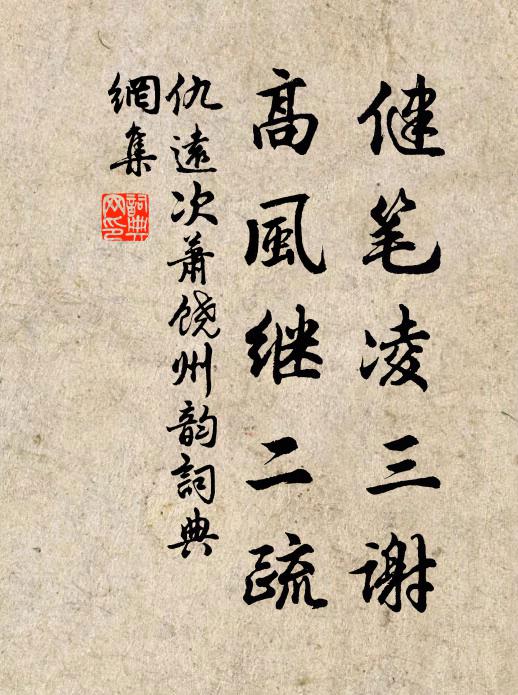 健笔凌三谢
高風继二疏
仇遠次萧饶州韵詞典
網集
詞典
网印